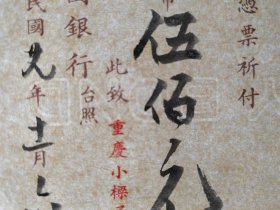 憑票祈付
幣伍佰元
此致重慶小樑子
國銀行台照
民國 年十二月